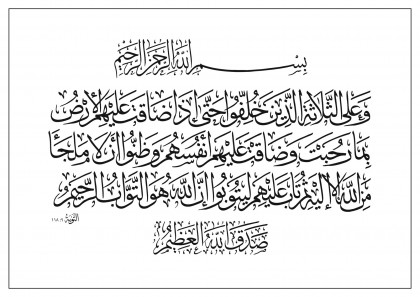 بِسْمِ اللَّهِ الرَّحْمَنِ الرَّحِيمِ
وَعَلَى الثَّلَاثَةِ الَّذِينَ خُلِّفُوا حَتَّى إِذَا ضَاقَتْ عَلَيْهِمُ الْأَرْضُ
بِمَا رَحُبَتْ وَضَاقَتْ عَلَيْهِمْ أَنْفُسُهُمْ وَظَنُّوا أَنْ لَا مَلْجَأَ
مِنَ اللَّهِ إِلَّا إِلَيْهِ ثُمَّ تَابَ عَلَيْهِمْ لِيَتُوبُوا إِنَّ اللَّهَ هُوَ التَّوَّابُ الرَّحِيمُ
التوبة ٩: ١١٨
صَدَقَ اللَّهُ الْعَظِيمُ